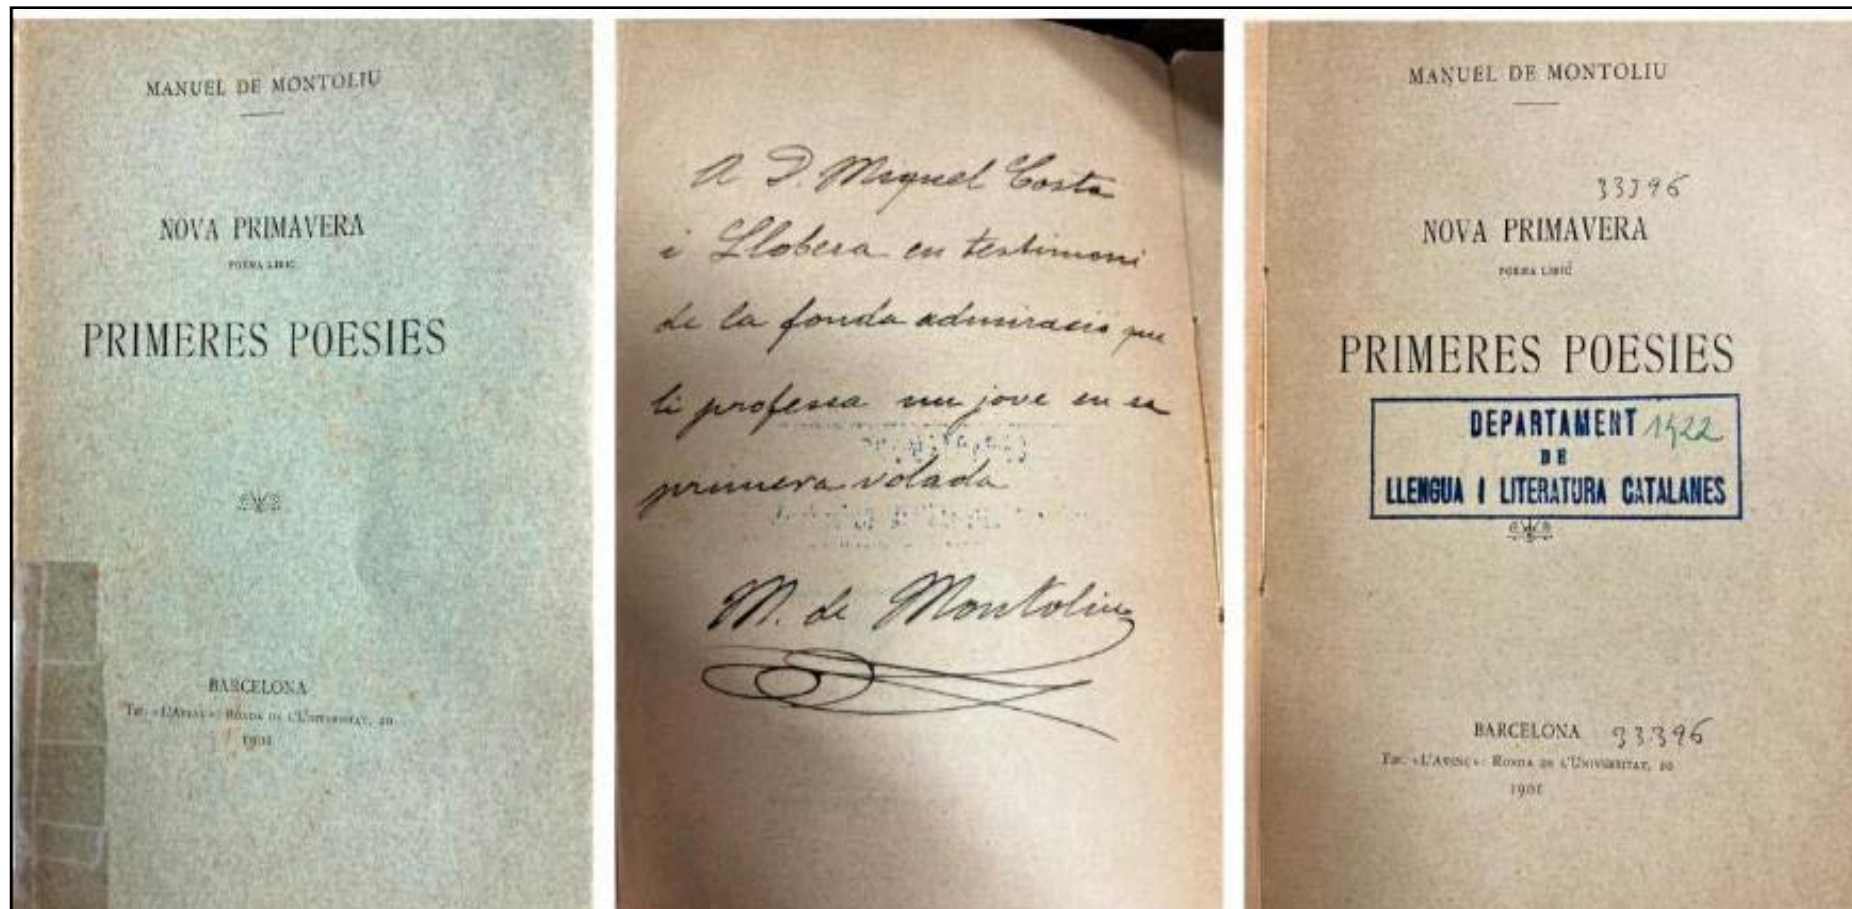 MANUEL DE MONTOLIU
NOVA PRIMAVERA
POEMA LIRIC
PRIMERES POESIES
BARCELONA
Tip. «L'Avenç»: Ronda de l'Universitat, 20
1901
A D. Miquel Costa
i Llobera en testimoni
de la fonda admiració que
li professa un jove en sa
primera volada
M. de Montoliu
MANUEL DE MONTOLIU
33396
NOVA PRIMAVERA
POEMA LIRIC
PRIMERES POESIES
DEPARTAMENT 1422
DE
LLENGUA I LITERATURA CATALANES
BARCELONA 33396
Tip. «L'Avenç»: Ronda de l'Universitat, 20
1901